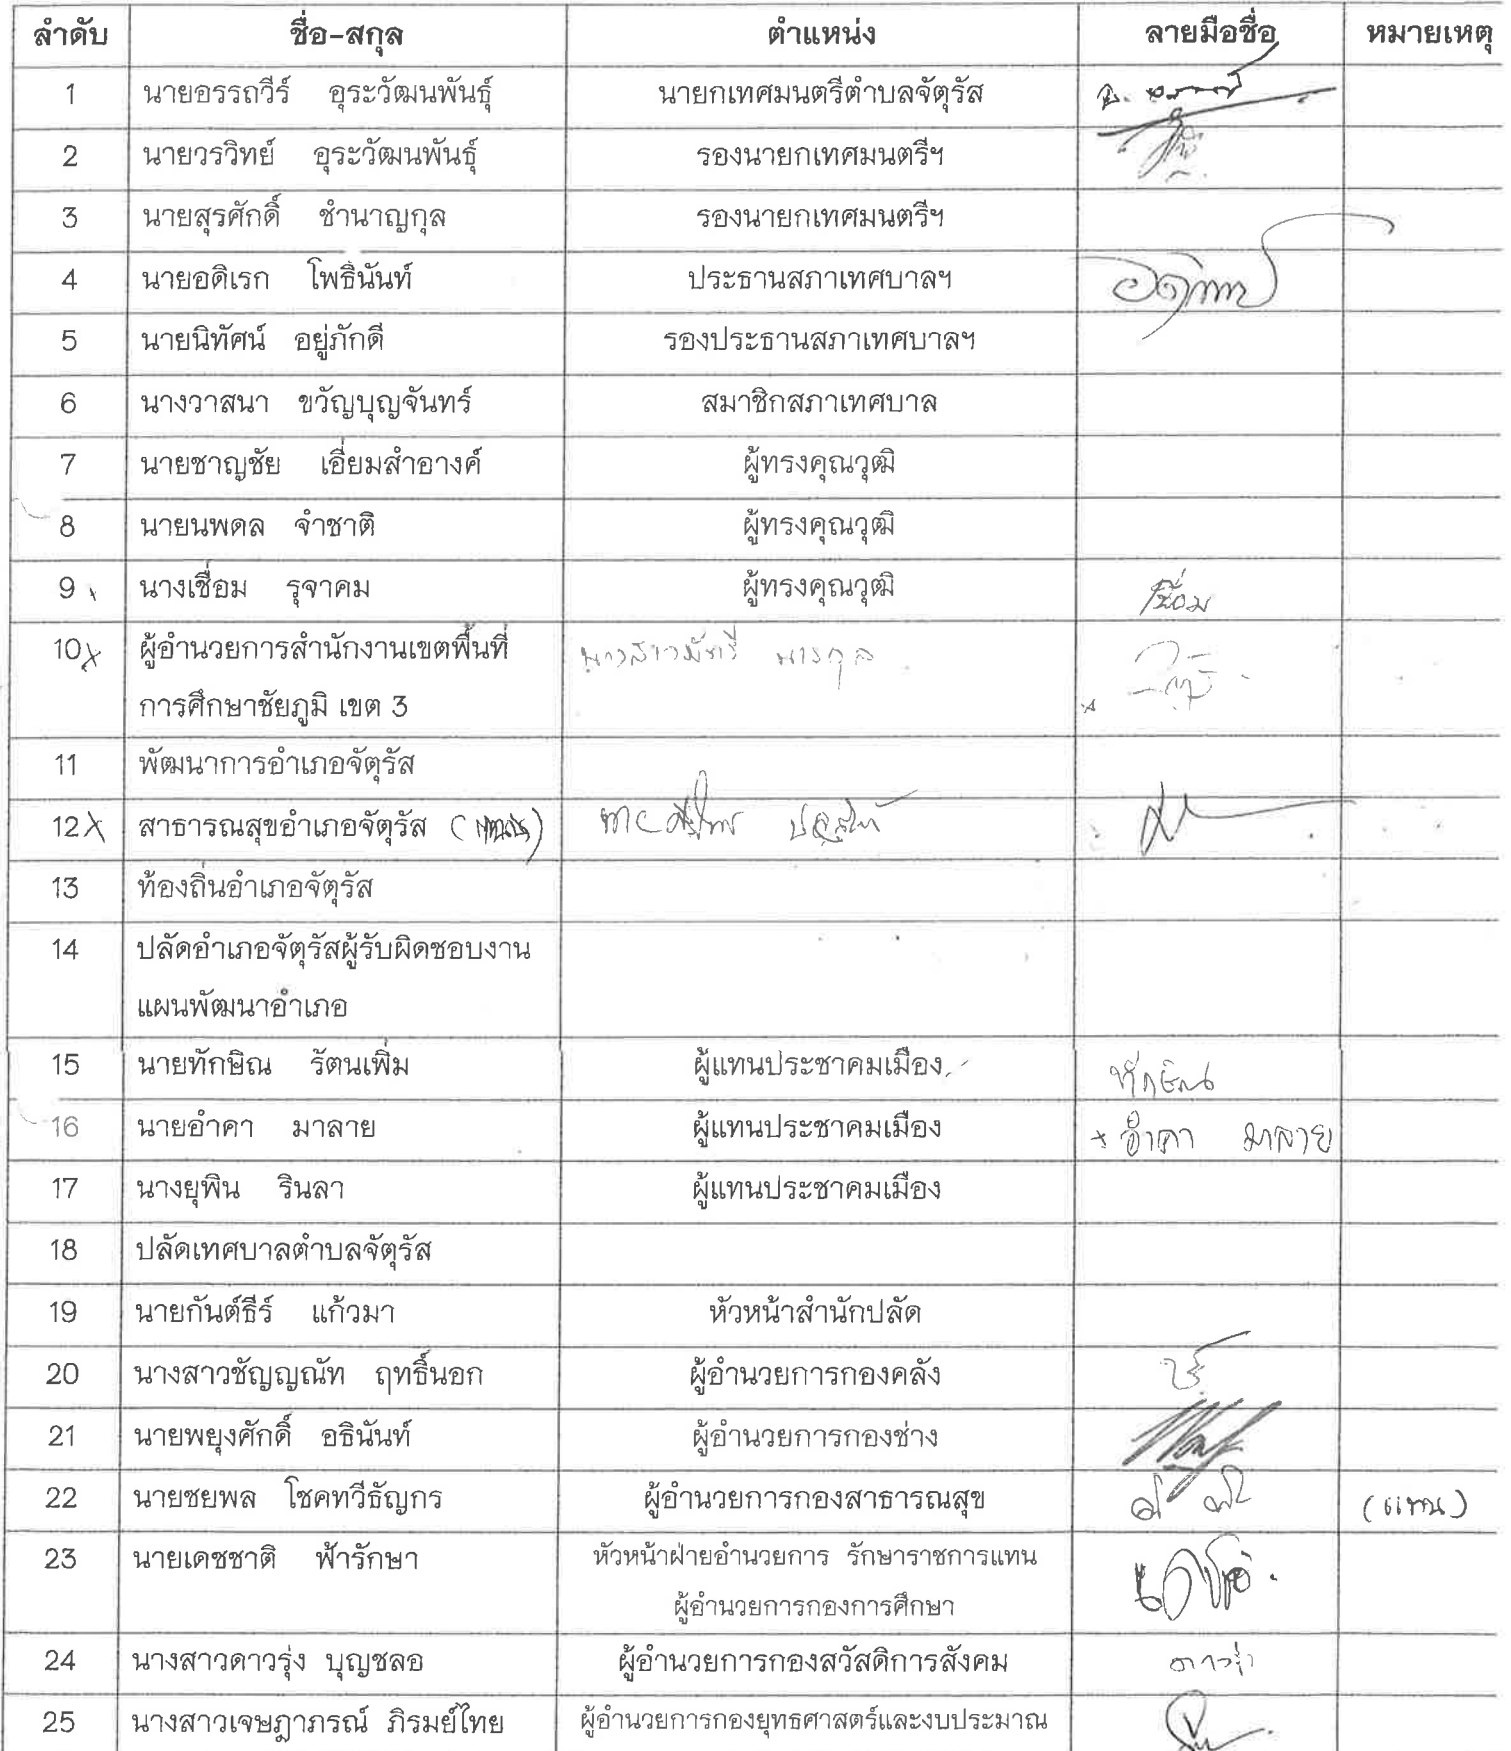 ลำดับ ชื่อ-สกุล ตำแหน่ง ลายมือชื่อ หมายเหตุ
1 นายอรรถวีร์ อุระวัฒนพันธุ์ นายกเทศมนตรีตำบลจัตุรัส
2 นายวรวิทย์ อุระวัฒนพันธุ์ รองนายกเทศมนตรีฯ
3 นายสุรศักดิ์ ชำนาญกุล รองนายกเทศมนตรีฯ
4 นายอดิเรก โพธินันท์ ประธานสภาเทศบาลฯ
5 นายนิทัศน์ อยู่ภักดี รองประธานสภาเทศบาลฯ
6 นางวาสนา ขวัญบุญจันทร์ สมาชิกสภาเทศบาล
7 นายชาญชัย เอี่ยมสำอางค์ ผู้ทรงคุณวุฒิ
8 นายนพดล จำชาติ ผู้ทรงคุณวุฒิ
9 นางเชื่อม รุจาคม ผู้ทรงคุณวุฒิ เชื่อม
10 ผู้อำนวยการสำนักงานเขตพื้นที่ นางสาว
การศึกษาชัยภูมิ เขต 3
11 พัฒนาการอำเภอจัตุรัส
12 สาธารณสุขอำเภอจัตุรัส
13 ท้องถิ่นอำเภอจัตุรัส
14 ปลัดอำเภอจัตุรัสผู้รับผิดชอบงาน
แผนพัฒนาอำเภอ
15 นายทักษิณ รัตนเพิ่ม ผู้แทนประชาคมเมือง ทักษิณ
16 นายอำคา มาลาย ผู้แทนประชาคมเมือง อำคา มาลาย
17 นางยุพิน รินลา ผู้แทนประชาคมเมือง
18 ปลัดเทศบาลตำบลจัตุรัส
19 นายกันต์ธีร์ แก้วมา หัวหน้าสำนักปลัด
20 นางสาวชัญญณัท ฤทธิ์นอก ผู้อำนวยการกองคลัง
21 นายพยุงศักดิ์ อธินันท์ ผู้อำนวยการกองช่าง
22 นายชยพล โชคทวีธัญกร ผู้อำนวยการกองสาธารณสุข (แทน)
23 นายเดชชาติ ฟ้ารักษา หัวหน้าฝ่ายอำนวยการ รักษาราชการแทน
ผู้อำนวยการกองการศึกษา
24 นางสาวดาวรุ่ง บุญชลอ ผู้อำนวยการกองสวัสดิการสังคม ดาวรุ่ง
25 นางสาวเจษฎาภรณ์ ภิรมย์ไทย ผู้อำนวยการกองยุทธศาสตร์และงบประมาณ